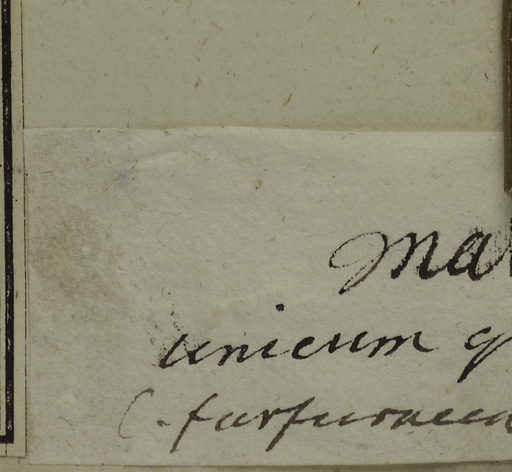 Mar
unicum q
C. furfuracea